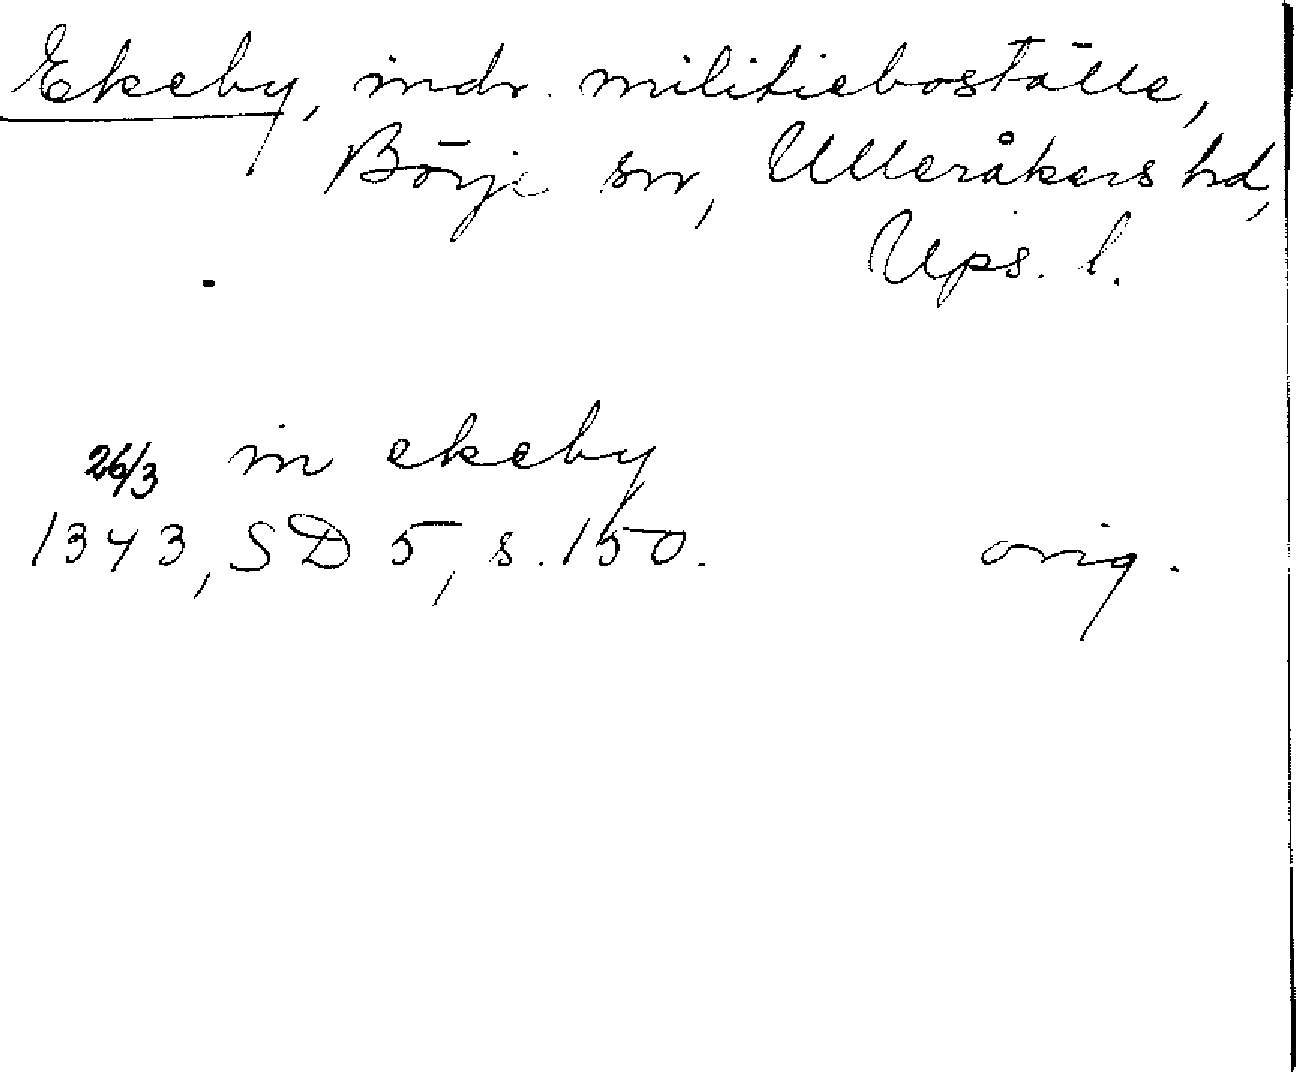 Ekeby, indr. militieboställe,
Börje sn, Ulleråkers hd,
Ups. l.
26/3 in ekeby
1343, SD 5, s. 150. orig.